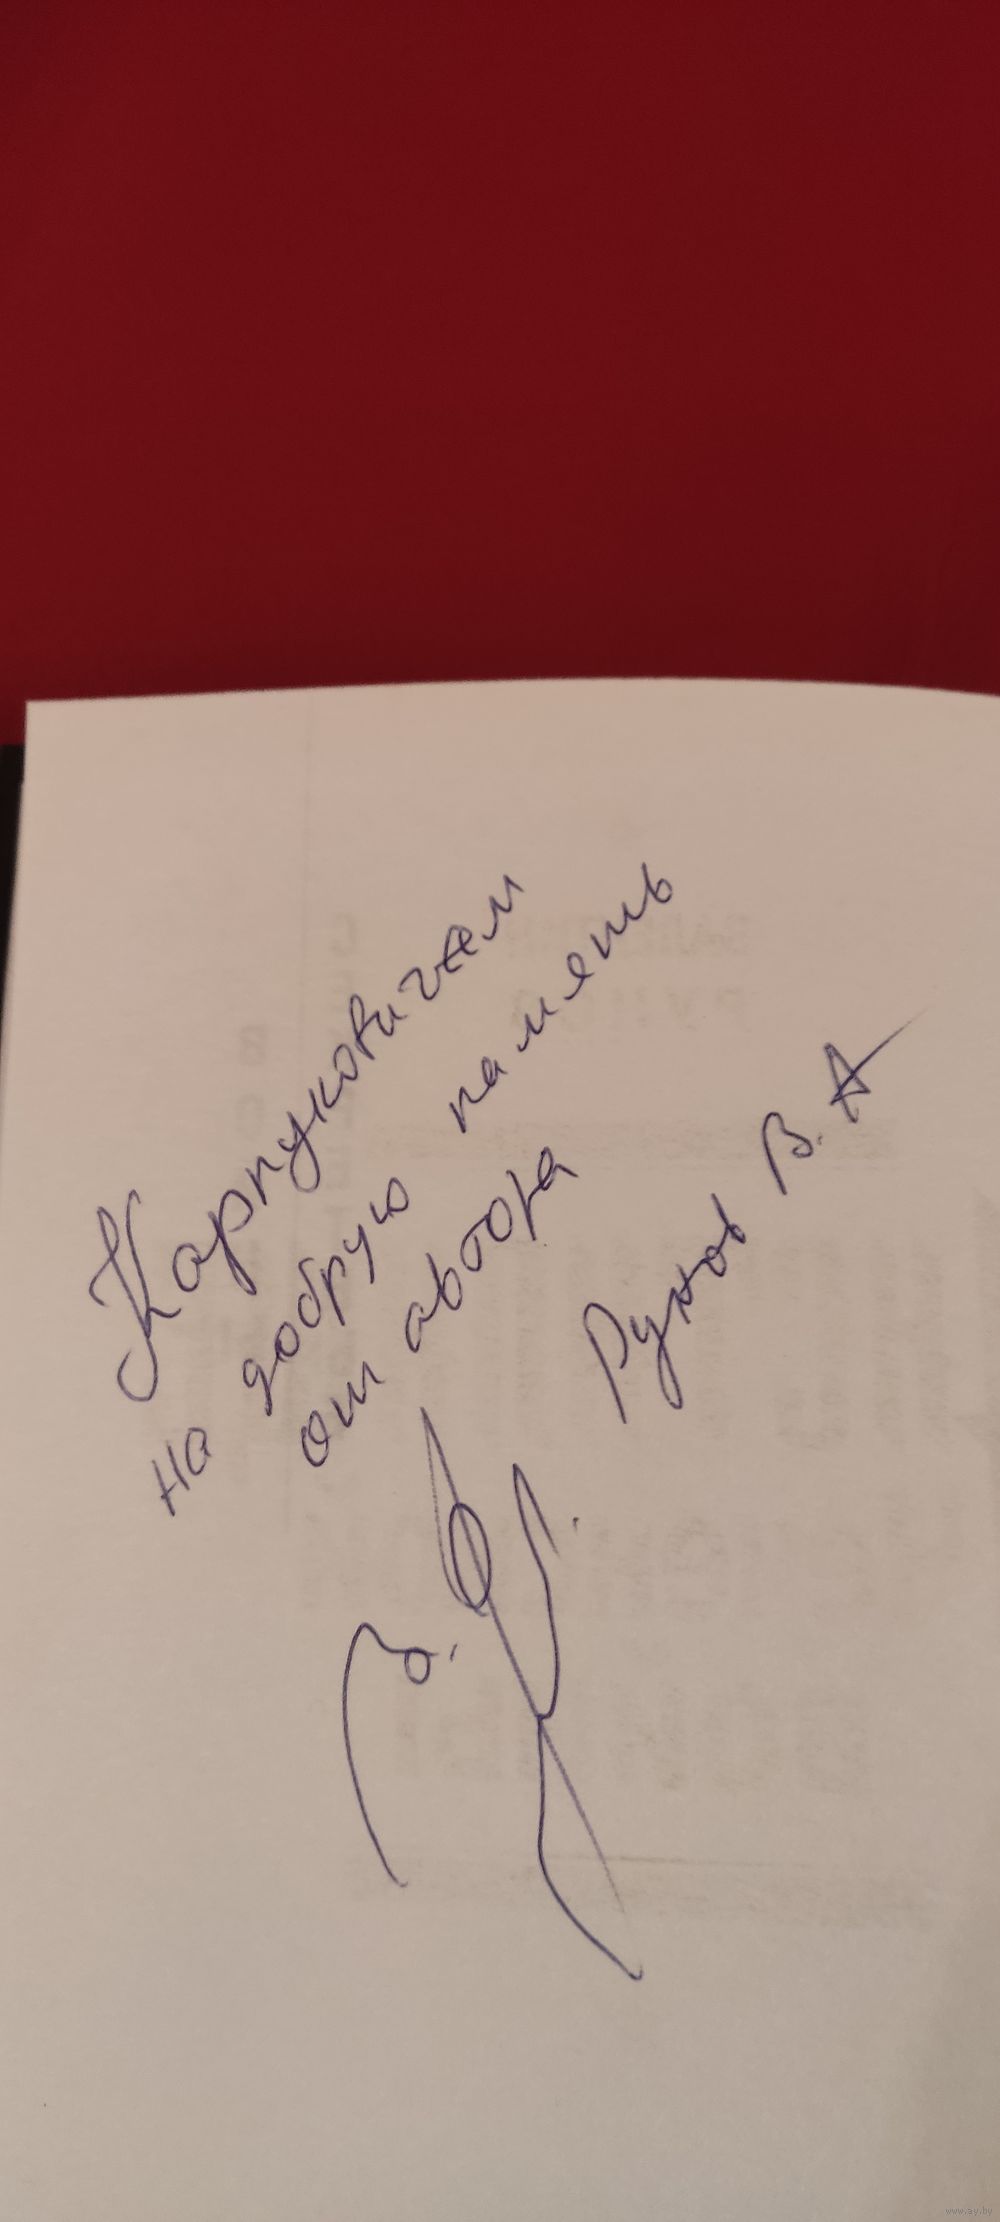 Карпуковичам
на добрую память
от автора
Рунов В. А
www.ay.by